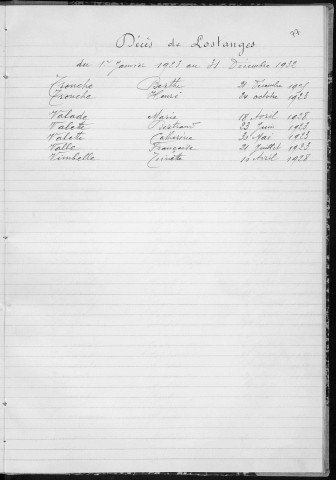 77
Décès de Lostanges
du 1er Janvier 1923 au 31 Décembre 1932
Tronche Berthe 21 Décembre
Tronche Henri 24 octobre 1923
Valade Marie 18 Avril 1928
Valete Bertrand 23 Juin 1923
Valete Catherine 20 Mai 1923
Valle Françoise 21 Juillet 1923
Vimbelle 16 Avril 1928